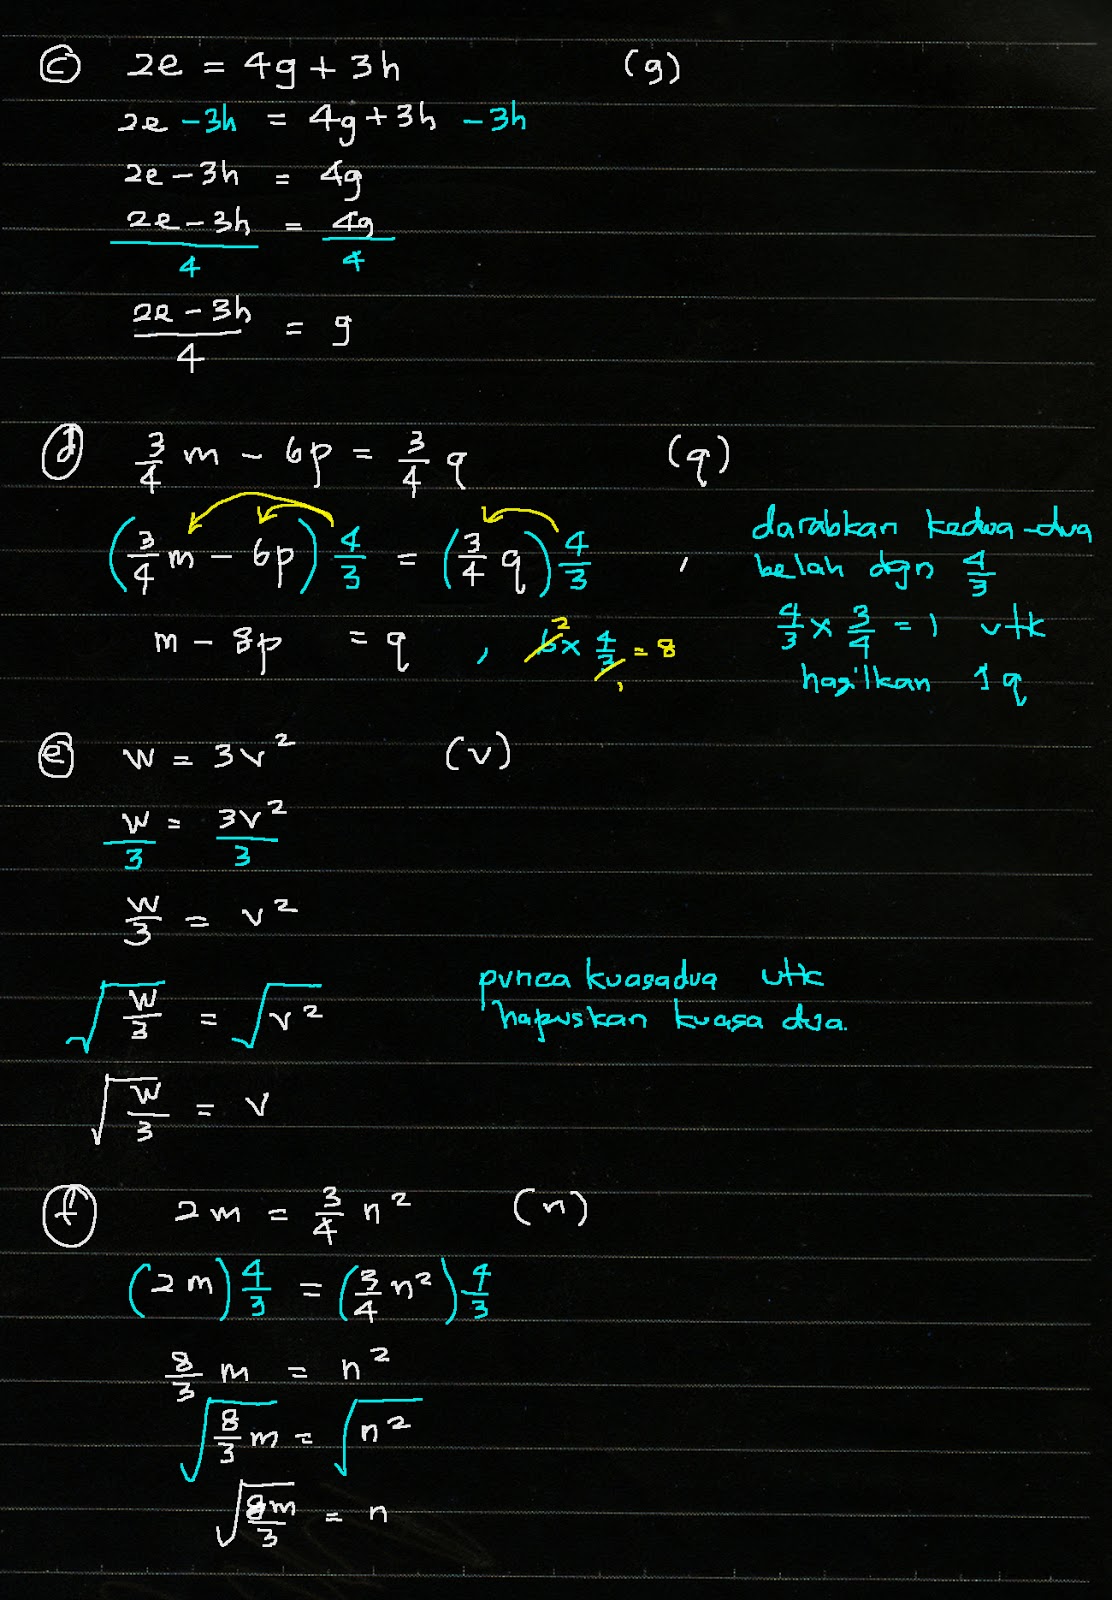 ⓒ 2e = 4g + 3h (g)
2e - 3h = 4g + 3h - 3h
2e - 3h = 4g
2e - 3h / 4 = 4g / 4
2e - 3h / 4 = g
ⓓ 3/4 m - 6p = 3/4 q (q)
(3/4 m - 6p) 4/3 = (3/4 q) 4/3 , darabkan kedua-dua
belah dgn 4/3
m - 8p = q , 6² × 4/3, = 8
4/3 × 3/4 = 1 utk
hasilkan 1q
ⓔ w = 3v² (v)
w/3 = 3v²/3
w/3 = v²
√(w/3) = √(v²) punca kuasadua utk
hapuskan kuasa dua.
√(w/3) = v
ⓕ 2m = 3/4 n² (n)
(2m) 4/3 = (3/4 n²) 4/3
8/3 m = n²
√(8/3 m) = √(n²)
√(8m/3) = n